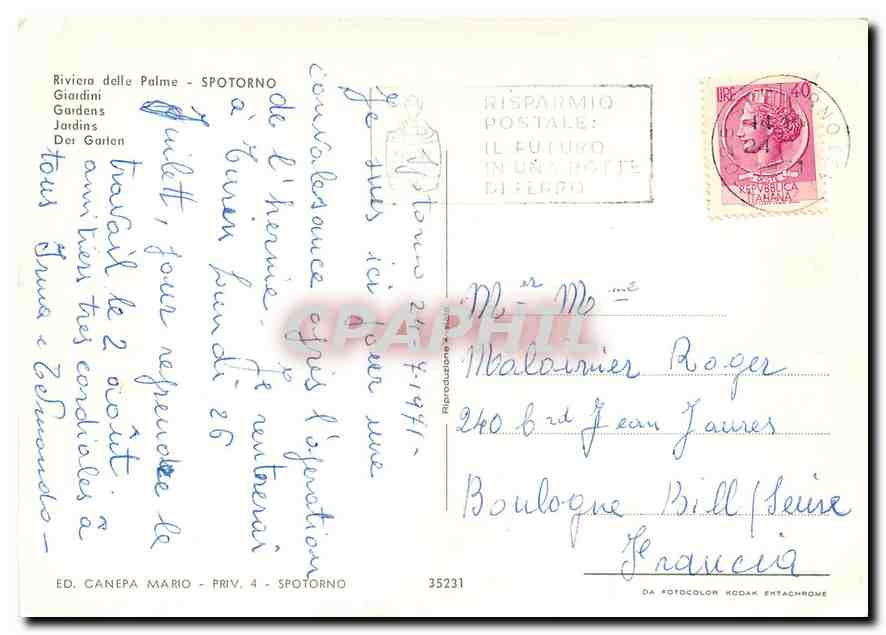 Riviera delle Palme - SPOTORNO
Giardini
Gardens
Jardins
Der Garten
RISPARMIO
POSTALE:
IL FUTURO
IN UNA BOTTE
DI FERRO
LIRE 40
POSTE
REPVBBLICA
ITALIANA
14
24
Spotorno 24.7.1971-
Je suis ici pour une
convalesance après l'operation
de l'hernie. Je rentrerai
à Turin Lundi 26
Juilett, pour reprendre le
travail le 2 août.
amitiers tres cordiales à
tous Irma e Edmondo-
Mer Mme
Maloinier Roger
240 brd Jean Jaures
Boulogne Bill/Seine
Francia
Riproduzione vietata
CPAPHIL
ED. CANEPA MARIO - PRIV. 4 - SPOTORNO
35231
DA FOTOCOLOR KODAK EKTACHROME